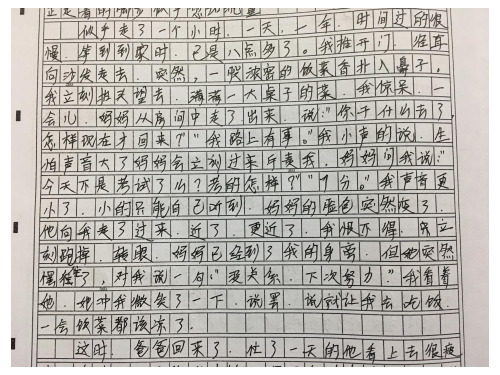 似乎走了一个小时.一天.一年.时间过的很
慢.等到到家时.已是八点多了.我推开门.径直
向沙发走去.突然,一股浓密的饭菜香扑入鼻子.
我立刻抬头望去.满满一大桌子的菜.我惊呆.一
会儿.妈妈从房间中走了出来.说:"你干什么去了,
怎样现在才回来?""我路上有事."我小声的说.生
怕声音大了妈妈会立刻过来斥责我.妈妈问我说:"
今天不是考试了么?考的怎样?""分."我声音更
小了.小的只能自己听到.妈妈的脸色突然变了.
他向我走了过来.近了.更近了.我恨不得立
刻跑掉.转眼.妈妈已经到了我的身离.但她突然
了,对我说一句:"没关系.下次努力."我看着
她.她冲我微笑了一下.说罢.说就让我去吃饭.
一会饭菜都该凉了.
这时.爸爸回来了.忙了一天的他看上去很疲